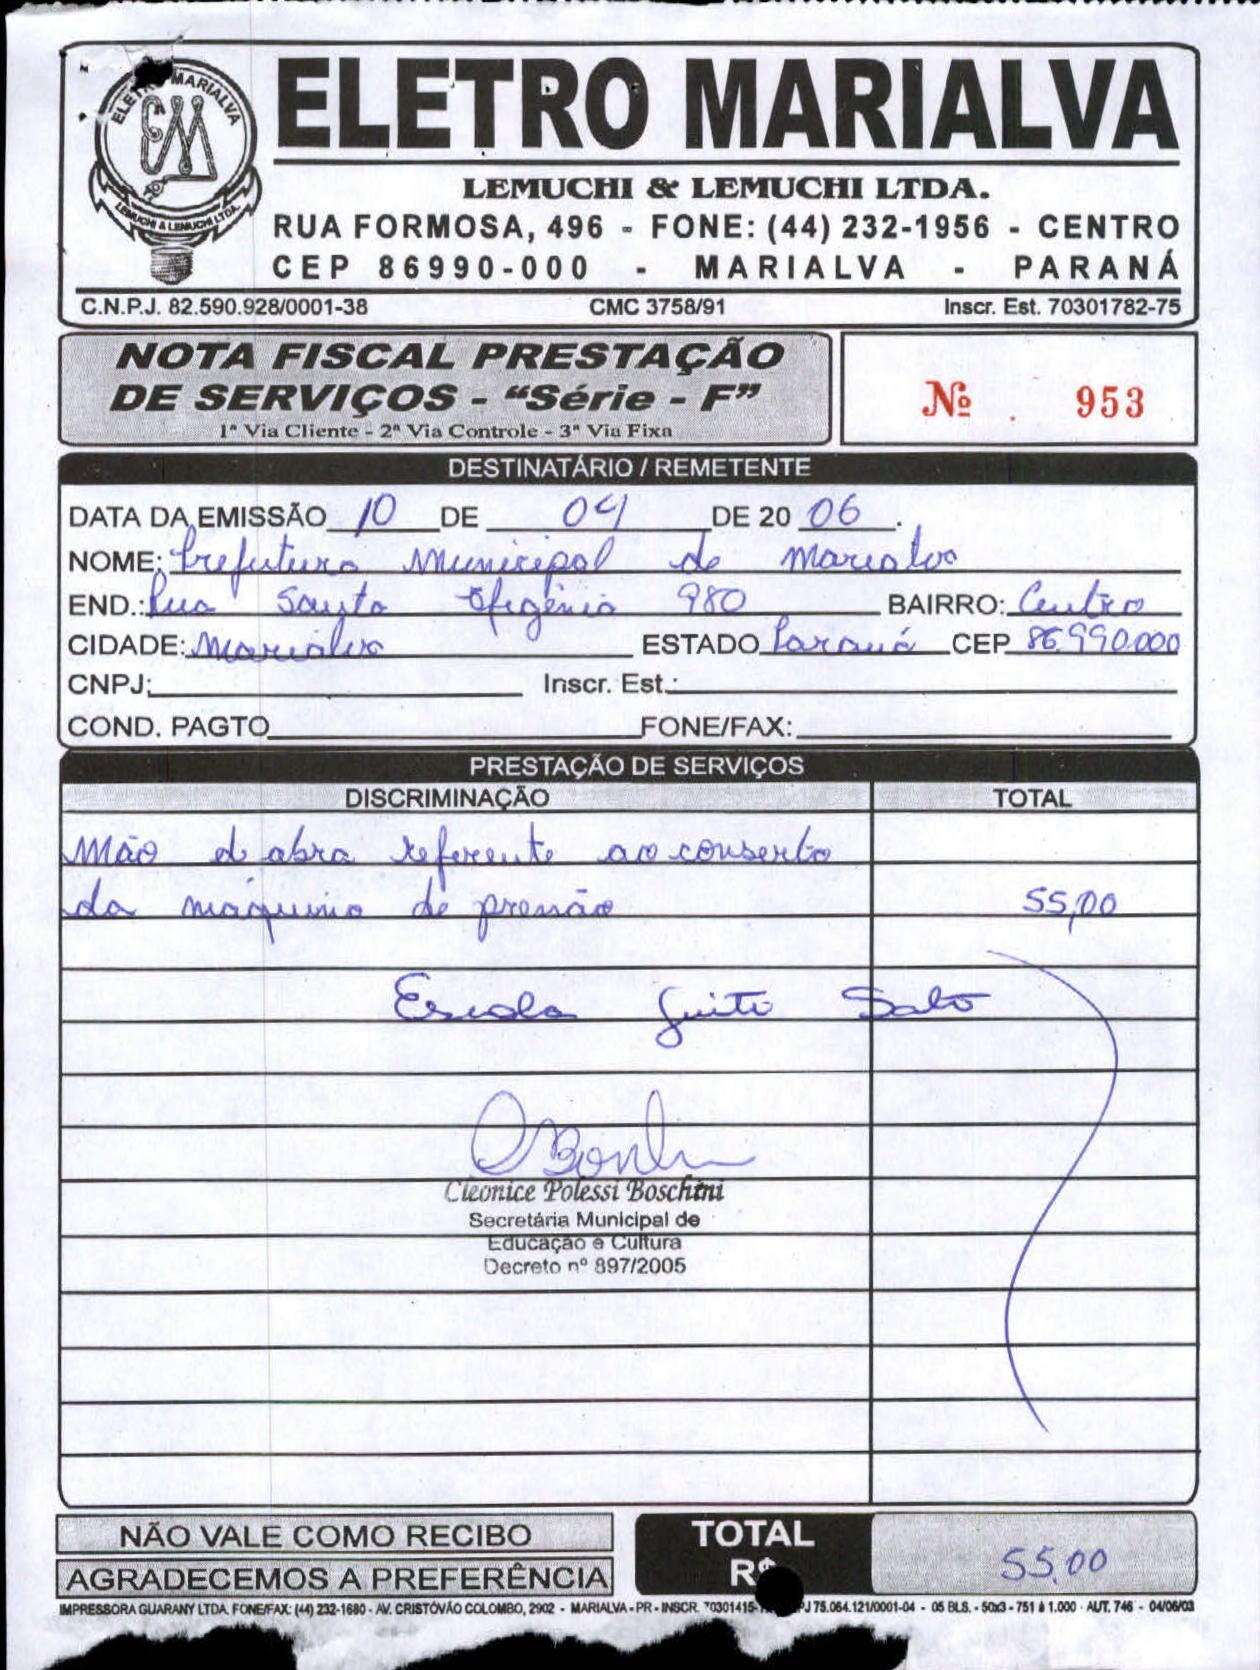 ELETRO MARIALVA
LEMUCHI & LEMUCHI LTDA.
ELETRO MARIALVA
LEMUCHI & LEMUCHI LTDA.
RUA FORMOSA, 496 - FONE: (44) 232-1956 - CENTRO
CEP 86990-000 - MARIALVA - PARANÁ
C.N.P.J. 82.590.928/0001-38 CMC 3758/91 Inscr. Est. 70301782-75
NOTA FISCAL PRESTAÇÃO
DE SERVIÇOS - “Série - F”
1ª Via Cliente - 2ª Via Controle - 3ª Via Fixa
Nº 953
DESTINATÁRIO / REMETENTE
DATA DA EMISSÃO 10 DE 04 DE 20 06.
NOME: Prefeitura Municipal de Marialva
END.: Rua Santa Efigênia 980 BAIRRO: Centro
CIDADE: Marialva ESTADO Paraná CEP 86.990.000
CNPJ: Inscr. Est.:
COND. PAGTO FONE/FAX:
PRESTAÇÃO DE SERVIÇOS
DISCRIMINAÇÃO TOTAL
Mão d abra referente ao conserto
da maquina de pressão 55,00
Escola Guito Sato
Cleonice Polessi Boschini
Secretária Municipal de
Educação e Cultura
Decreto nº 897/2005
NÃO VALE COMO RECIBO
AGRADECEMOS A PREFERÊNCIA
TOTAL
R$ 55,00
IMPRESSORA GUARANY LTDA. FONE/FAX: (44) 232-1680 - AV. CRISTÓVÃO COLOMBO, 2902 - MARIALVA - PR - INSCR. 70301415- 75.064.121/0001-04 - 05 BLS. - 50x3 - 751 à 1.000 - AUT. 746 - 04/06/03